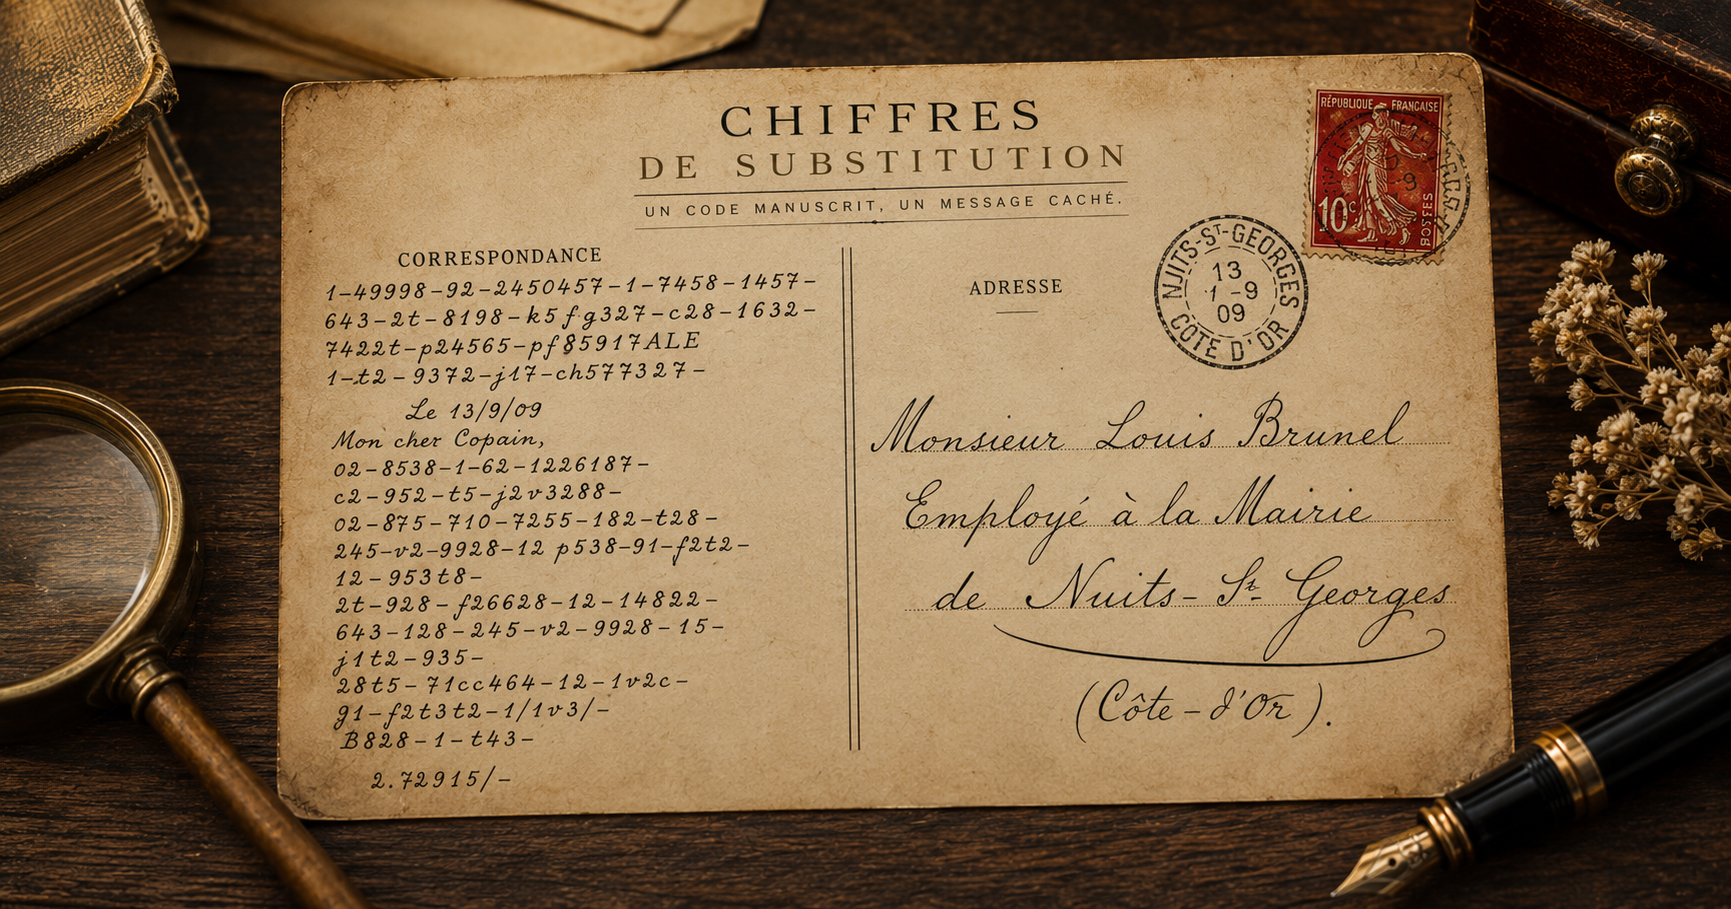 CHIFFRES
DE SUBSTITUTION
UN CODE MANUSCRIT, UN MESSAGE CACHÉ.
CORRESPONDANCE
1-49998-92-2450457-1-7458-1457-
643-2t-8198-k5fg327-c28-1632-
7422t-p24565-pf85917ALE
1-t2-9372-j17-ch577327-
Le 13/9/09
Mon cher Copain,
02-8538-1-62-1226187-
c2-952-t5-j2v3288-
02-875-710-7255-182-t28-
245-v2-9928-12 p538-91-f2t2-
12-953t8-
2t-928-f26628-12-14822-
643-128-245-v2-9928-15-
j1t2-935-
28t5-71cc464-12-1v2c-
g1-f2t3t2-1/1v3/-
B828-1-t43-
2.72915/-
RÉPUBLIQUE FRANÇAISE
10c
POSTES
NUITS-ST-GEORGES
13
1-9
09
COTE D'OR
ADRESSE
Monsieur Louis Brunel
Employé à la Mairie
de Nuits-St-Georges
(Côte-d'Or).